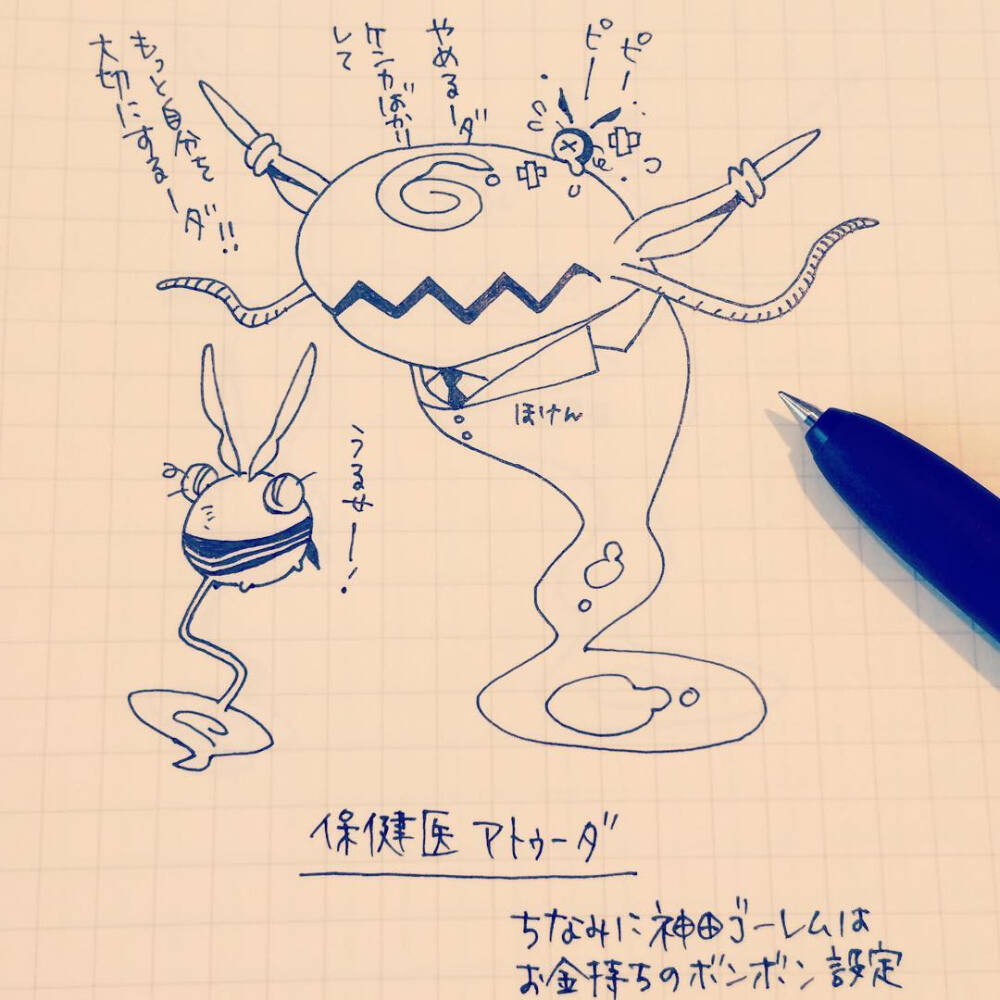 ピピー
やめるーダ
ケンカばかり
して
もっと自分を
大切にするーダ!!
ほけん
うるせー!
保健医 アトゥーダ
ちなみに神田ゴーレムは
お金持ちのボンボン設定